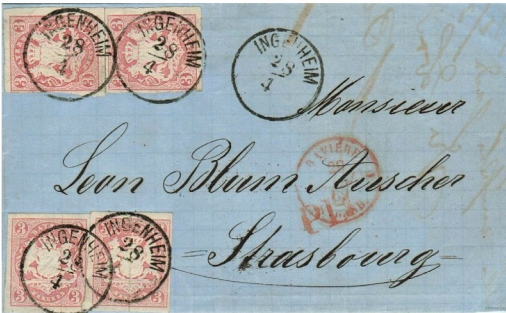 3 3
INGENHEIM
28
4
INGENHEIM
28
4
INGENHEIM
28
4
Monsieur
Leon Blum Auscher
Strasbourg
3 3
INGENHEIM
28
4
INGENHEIM
28
4